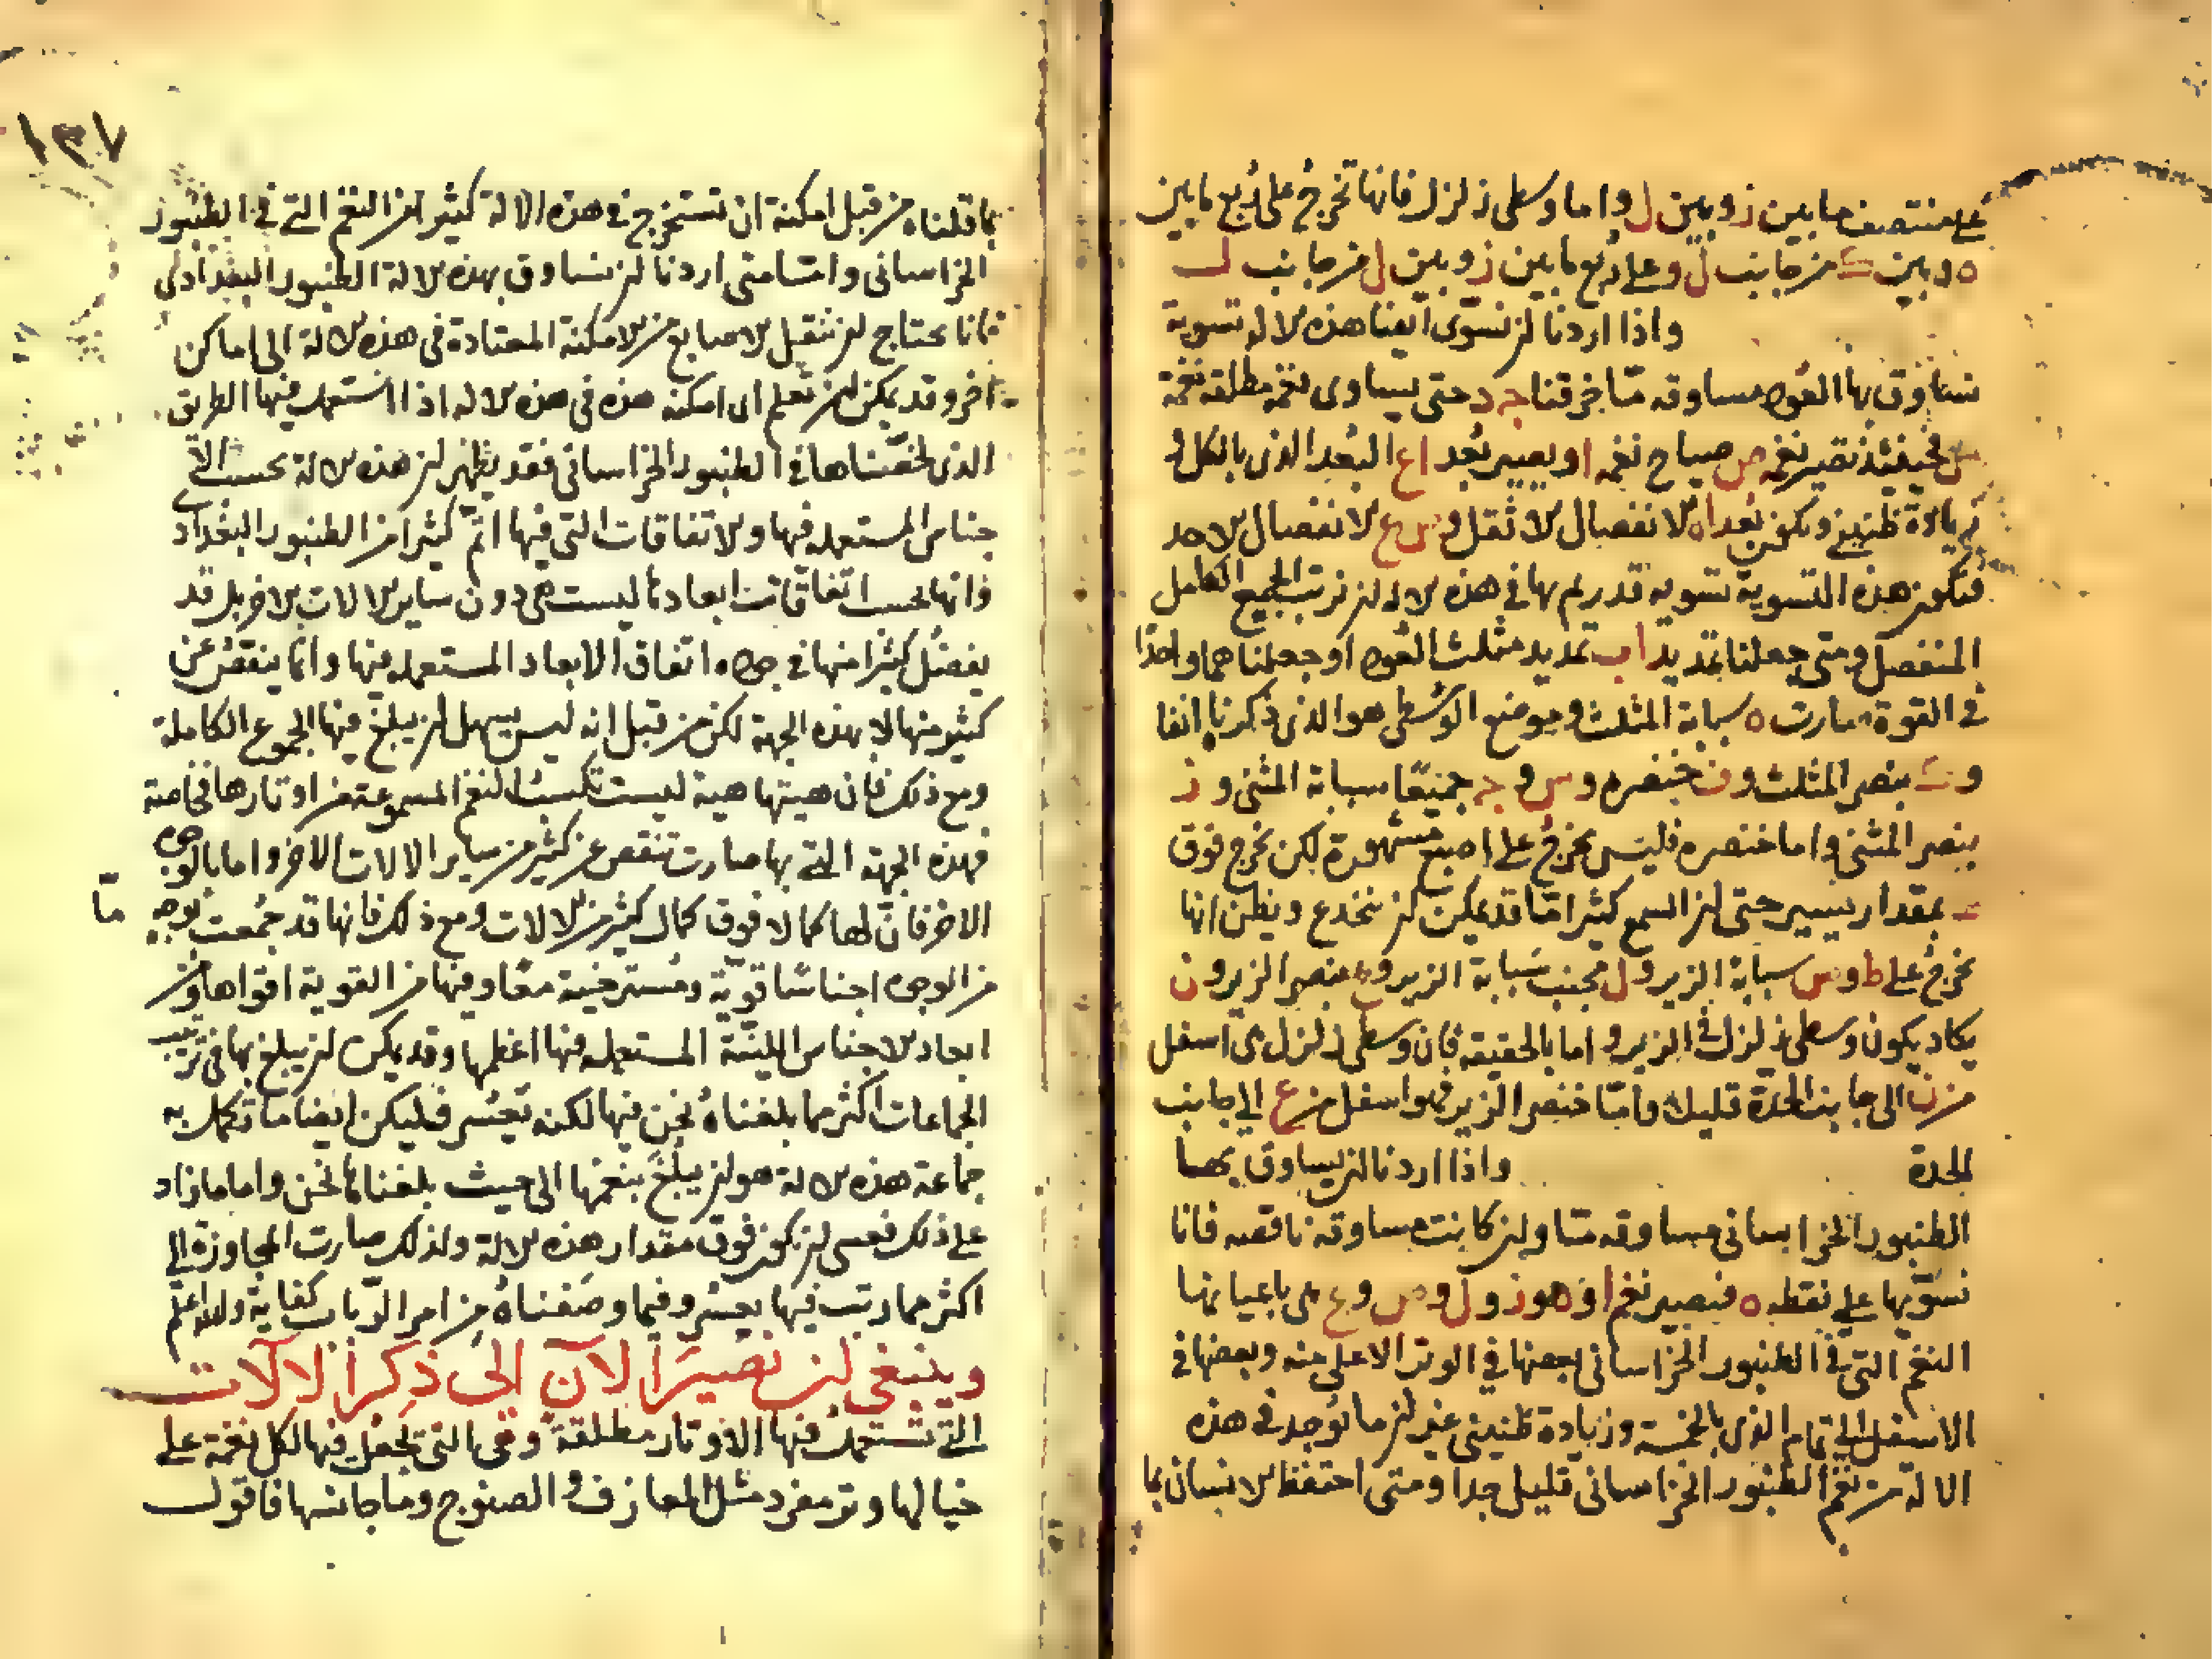 على منتصف ما بين ز وبين ل واما وسطى زلزل فانها تخرج على ربع ما بين
ه وبين ك من جانب ل وعلى ربع ما بين ز وبين ل من جانب ل
واذا اردنا ان نسوى ايضا هذه الاله تسوية
نساوق بها العود مساوقه ما خرقنا ج د حتى يساوى نغمة مطلقه نغمة
س فحينئذ تصير نغمه ص صياح نغمه ا ويصير بعد ا ع البعد الذى بالكل و
زيادة طنينى ويكون بعد ا ه الانفصال الاثقل و س ع الانفصال الاحد
فتكون هذه التسوية تسويه قد ريم بها فى هذه الاله ان نرتب الجمع الكامل
المنفصل ومتى جعلنا تمديد ا ب تمديد مثلث العود او جعلناهما واحدا
فى القوة صارت ه سبابة المثلث وموضع الوسطى هو الذى ذكرناه انفا
و ك بنصر المثلث و ن خنصره و س و ج جميعا سبابة المثنى و ز
بنصر المثنى واما خنصره فليس يخرج على اصبع مشهورة لكن يخرج فوق
بمقدار يسير حتى ان السمع كثيرا ما قد يمكن ان ينخدع ويظن انها
تخرج على ط و س سبابة الزير و ل مجنب سبابة الزير و ع بنصر الزير و ن
يكاد يكون وسطى زلزل فى الزير واما بالحقيقه فان وسطى زلزل هى اسفل
من ن الى جانب الحدة قليلا واما خنصر الزير فهو اسفل من ع الى جانب
الحدة واذا اردنا ان يساوق بها
الطنبور الخراسانى مساوقه ما وان كانت مساوقه ناقصه فانا
نسويها على نقطه ه فتصير نغم ا و ه و ز و ل و س و ع هى باعيانها
النغم التى فى الطنبور الخراسانى بعضها فى الوتر الاعلى منه وبعضها فى
الاسفل الى تمام الذى بالخمسة وزيادة طنينى غير ان ما يوجد فى هذه
الالة من نغم الطنبور الخراسانى قليل جدا ومتى احتفظ الانسان بما
١٣٧
بما قلناه من قبل امكنه ان تستخرج فى هذه الالة كثيرا من النغم التى فى الطنبور
الخراسانى واما متى اردنا ان نساوق بهذه الالة الطنبور البغدادى
فانا نحتاج ان ننقل الاصابع من الامكنة المعتادة فى هذه الالة الى اماكن
اخر وقد يمكن ان نعلم اى امكنه هذه فى هذه الاله اذا استعمل فيها الطريق
الذى لخصناها فى الطنبور الخراسانى فقد يظهر ان هذه الالة بحسب الا
جناس المستعمله فيها والاتفاقات التى فيها اتم كثيرا من الطنبور البغداد
ذاتها بحسب اتفاقات ابعادها ليست هى دون ساير الالات الاخر بل قد
يفضل كثيرا منها فى جوده اتفاق الابعاد المستعمله فيها وانما ينقص عن
كثير منها لا بهذه الجهة لكن من قبل انه ليس يسهل ان يبلغ فيها الجموع الكاملة
ومع ذلك فان هيئتها هيئة ليست تكسب النغم المسموعة من اوتارها فخامة
فهذه الجهة التى بها صارت تنقص عن كثير من ساير الالات الاخر واما بالوجوه
الاخر فان لها كمالا فوق كمال كثير من الالات ومع ذلك فانها قد جمعت بوجه
ما
من الوجوه اجناسا قوية ومسترخية معا وفيها من القوية اقواها ومن
ابعاد الاجناس اللينة المستعمله فيها اعظمها وقد يمكن ان يبلغ بها فى ترتيب
الجماعات اكثر مما بلغناه نحن فيها لكنه بتعسر فليكن ايضا ما تكمل به
جماعة هذه الالة هو ان يبلغ بنغمها الى حيث بلغناها نحن واما ما زاد
على ذلك فعسى ان يكون فوق مقدار هذه الالة ولذلك صارت المجاوزة الى
اكثر مما رتب فيها بعسر وفيما وصفناه من امر الرباب كفاية والله اعلم
وينبغى ان نصير الآن الى ذكر الالآت
التى تستعمل فيها الاوتار مطلقة وهى التى يجعل فيها لكل نغمة على
حيالها وتر مفرد مثل المعازف و الصنوج وما جانسها فاقول